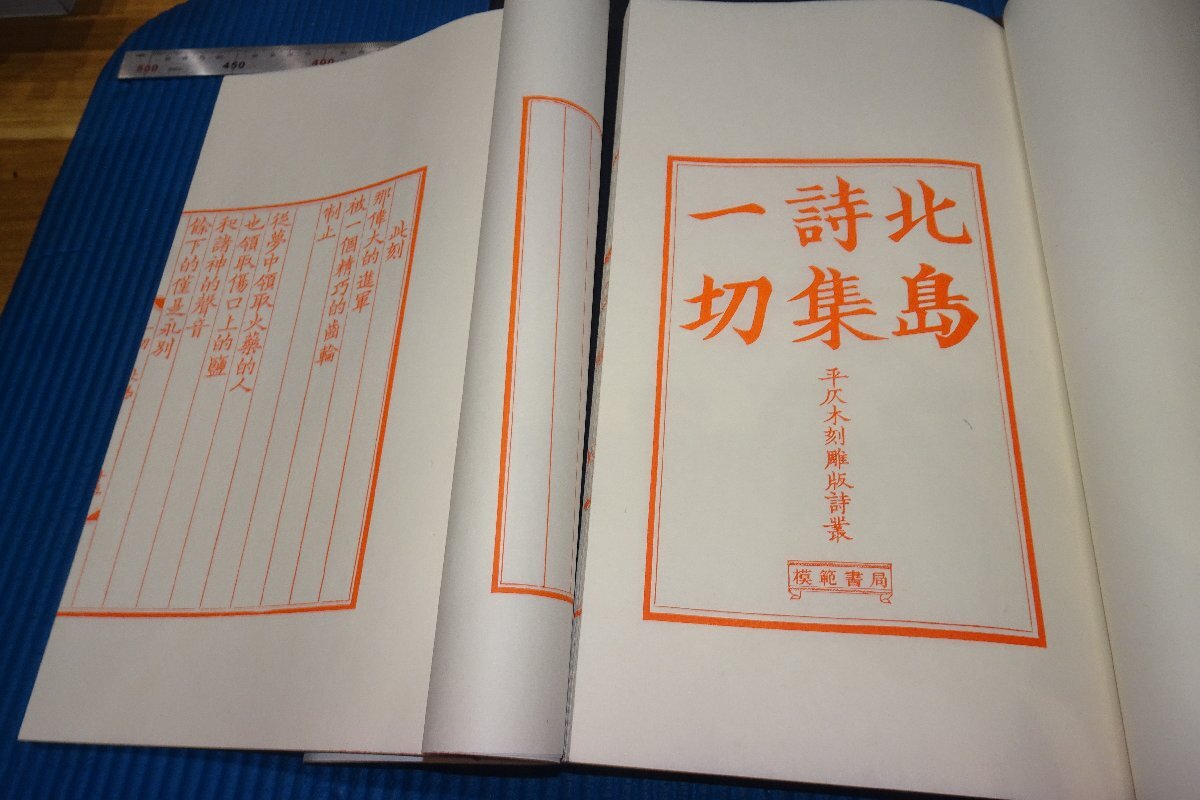 北島
詩集
一切
平仄木刻雕版詩叢
模範書局
此刻
那偉大的進軍
被一個精巧的齒輪
制止
從夢中領取火藥的人
也領取傷口上的鹽
和諸神的聲音
餘下的僅是永別
500
450
400